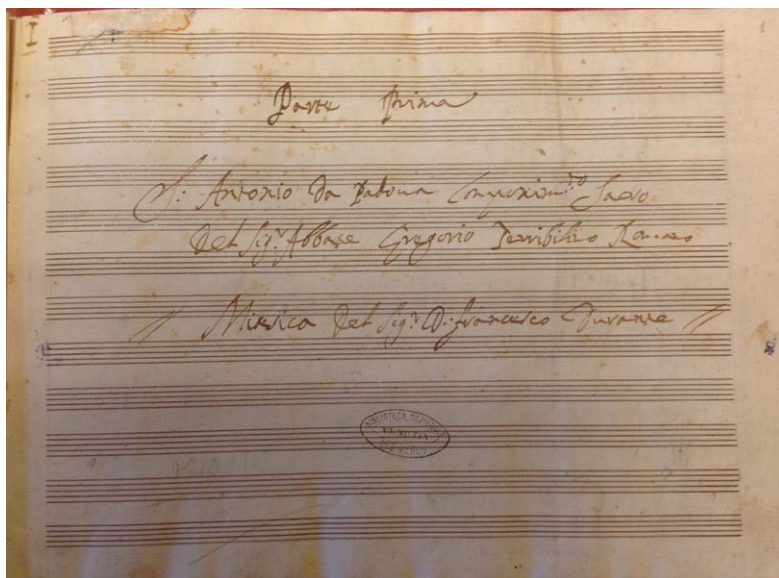 I
1
Parte Prima
S: Antonio Da Padoua Componim.to Sacro
Del Sig.r Abbate Gregorio Terribilino Romano
// Musica Del Sig.r D: Francesco Durante //
BIBLIOTECA NAZIONALE